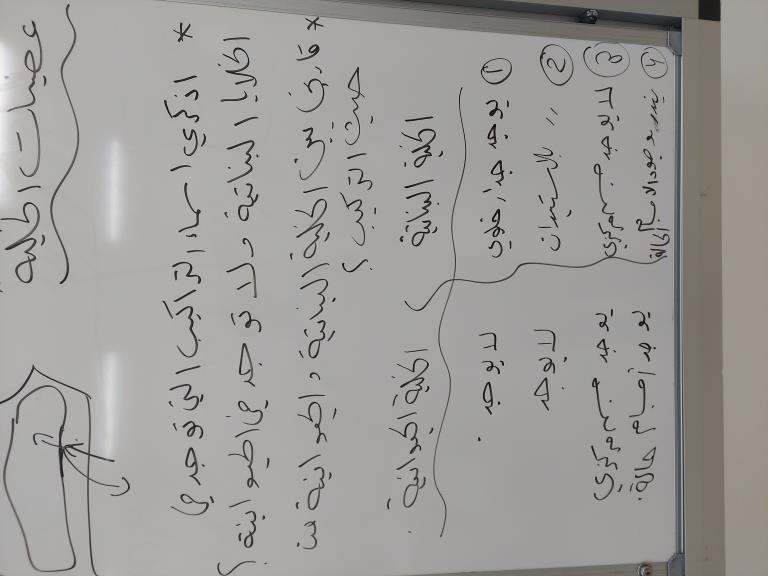 عضيات الخلية
* اذكري اسماء التراكيب التي توجد في
الخلايا النباتية ولا توجد في الحيوانية؟
* قارني بين الخلية النباتية والحيوانية من
حيث التركيب؟
الخلية النباتية الخلية الحيوانية
① يوجد جدار خلوي لا يوجد
② " بلاستيدات لا يوجد
③ لا يوجد جسم مركزي يوجد جسم مركزي
④ الاجسام الحالة يوجد أجسام حالة